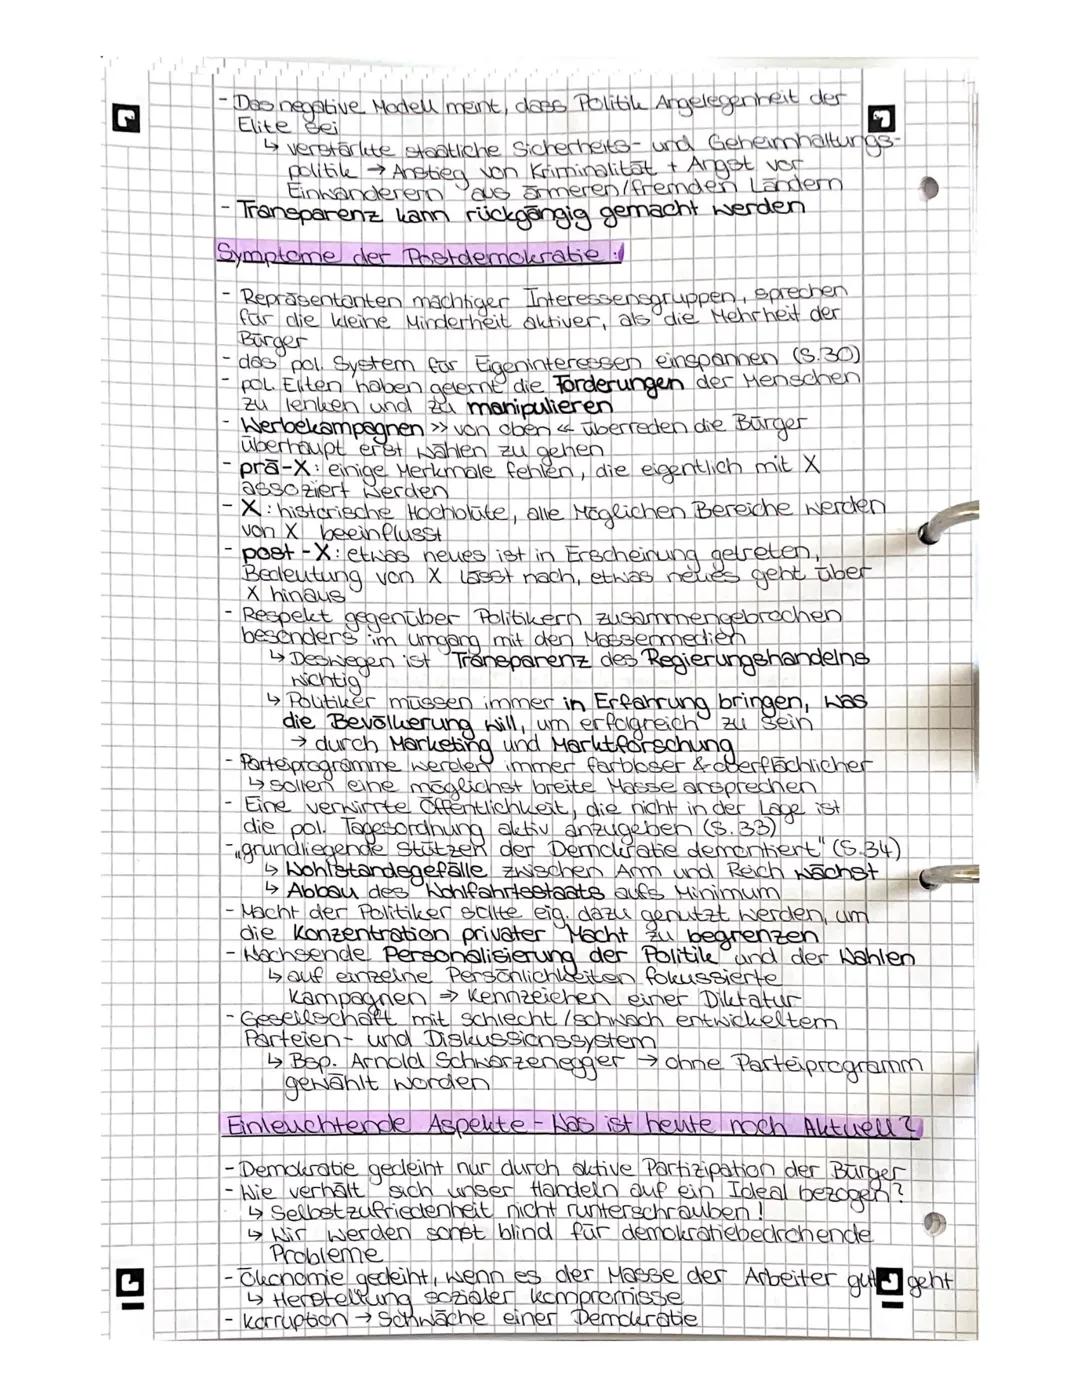 - Das negative Modell meint, dass Politik Angelegenheit der
Elite sei
↳ verstärkte staatliche Sicherheits- und Geheimhaltungs-
politik → Anstieg von Kriminalität + Angst vor
Einwanderern aus ärmeren/fremden Ländern
- Transparenz kann rückgängig gemacht werden
Symptome der Postdemokratie:
- Repräsentanten mächtiger Interessensgruppen, sprechen
für die kleine Minderheit aktiver, als die Mehrheit der
Bürger
- das pol. System für Eigeninteressen einspannen (S.30)
- pol. Eliten haben gelernt die Forderungen der Menschen
zu lenken und zu manipulieren
- Werbekampagnen >> von oben << überreden die Bürger
überhaupt erst wählen zu gehen
- prä-X: einige Merkmale fehlen, die eigentlich mit X
assoziert werden
- X: historische Hochblüte, alle Möglichen Bereiche werden
von X beeinflusst
- post-X: etwas neues ist in Erscheinung getreten,
Bedeutung von X lässt nach, etwas neues geht über
X hinaus
- Respekt gegenüber Politikern zusammengebrochen
besonders im umgang mit den Massenmedien
↳ Deswegen ist Transparenz des Regierungshandelns
wichtig
↳ Politiker müssen immer in Erfahrung bringen, was
die Bevölkerung will, um erfolgreich zu sein
→ durch Marketing und Marktforschung
- Parteiprogramme werden immer farbloser & oberflächlicher
↳ sollen eine möglichst breite Masse ansprechen
- Eine verwirrte Öffentlichkeit, die nicht in der Lage ist
die pol. Tagesordnung aktiv anzugeben (S.33)
- „grundliegende Stützen der Demokratie demontiert" (S.34)
↳ Wohlstandsgefälle zwischen Arm und Reich wächst
↳ Abbau des Wohlfahrtsstaats aufs Minimum
- Macht der Politiker sollte eig. dazu genutzt werden, um
die Konzentration privater Macht zu begrenzen
- Wachsende Personalisierung der Politik und der Wahlen
↳ auf einzelne Persönlichkeiten fokussierte
Kampagnen ⇒ Kennzeichen einer Diktatur
- Gesellschaft mit schlecht/schwach entwickeltem
Parteien- und Diskussionssystem
↳ Bsp. Arnold Schwarzenegger → ohne Parteiprogramm
gewählt worden
Einleuchtende Aspekte - Was ist heute noch Aktuell?
- Demokratie gedeiht nur durch aktive Partizipation der Bürger
- Wie verhält sich unser Handeln auf ein Ideal bezogen?
↳ Selbstzufriedenheit nicht runterschrauben!
↳ Wir werden sonst blind für demokratiebedrohende
Probleme
- Ökonomie gedeiht, wenn es der Masse der Arbeiter gut geht
↳ Herstellung sozialer Kompromisse
- Korruption → Schwäche einer Demokratie